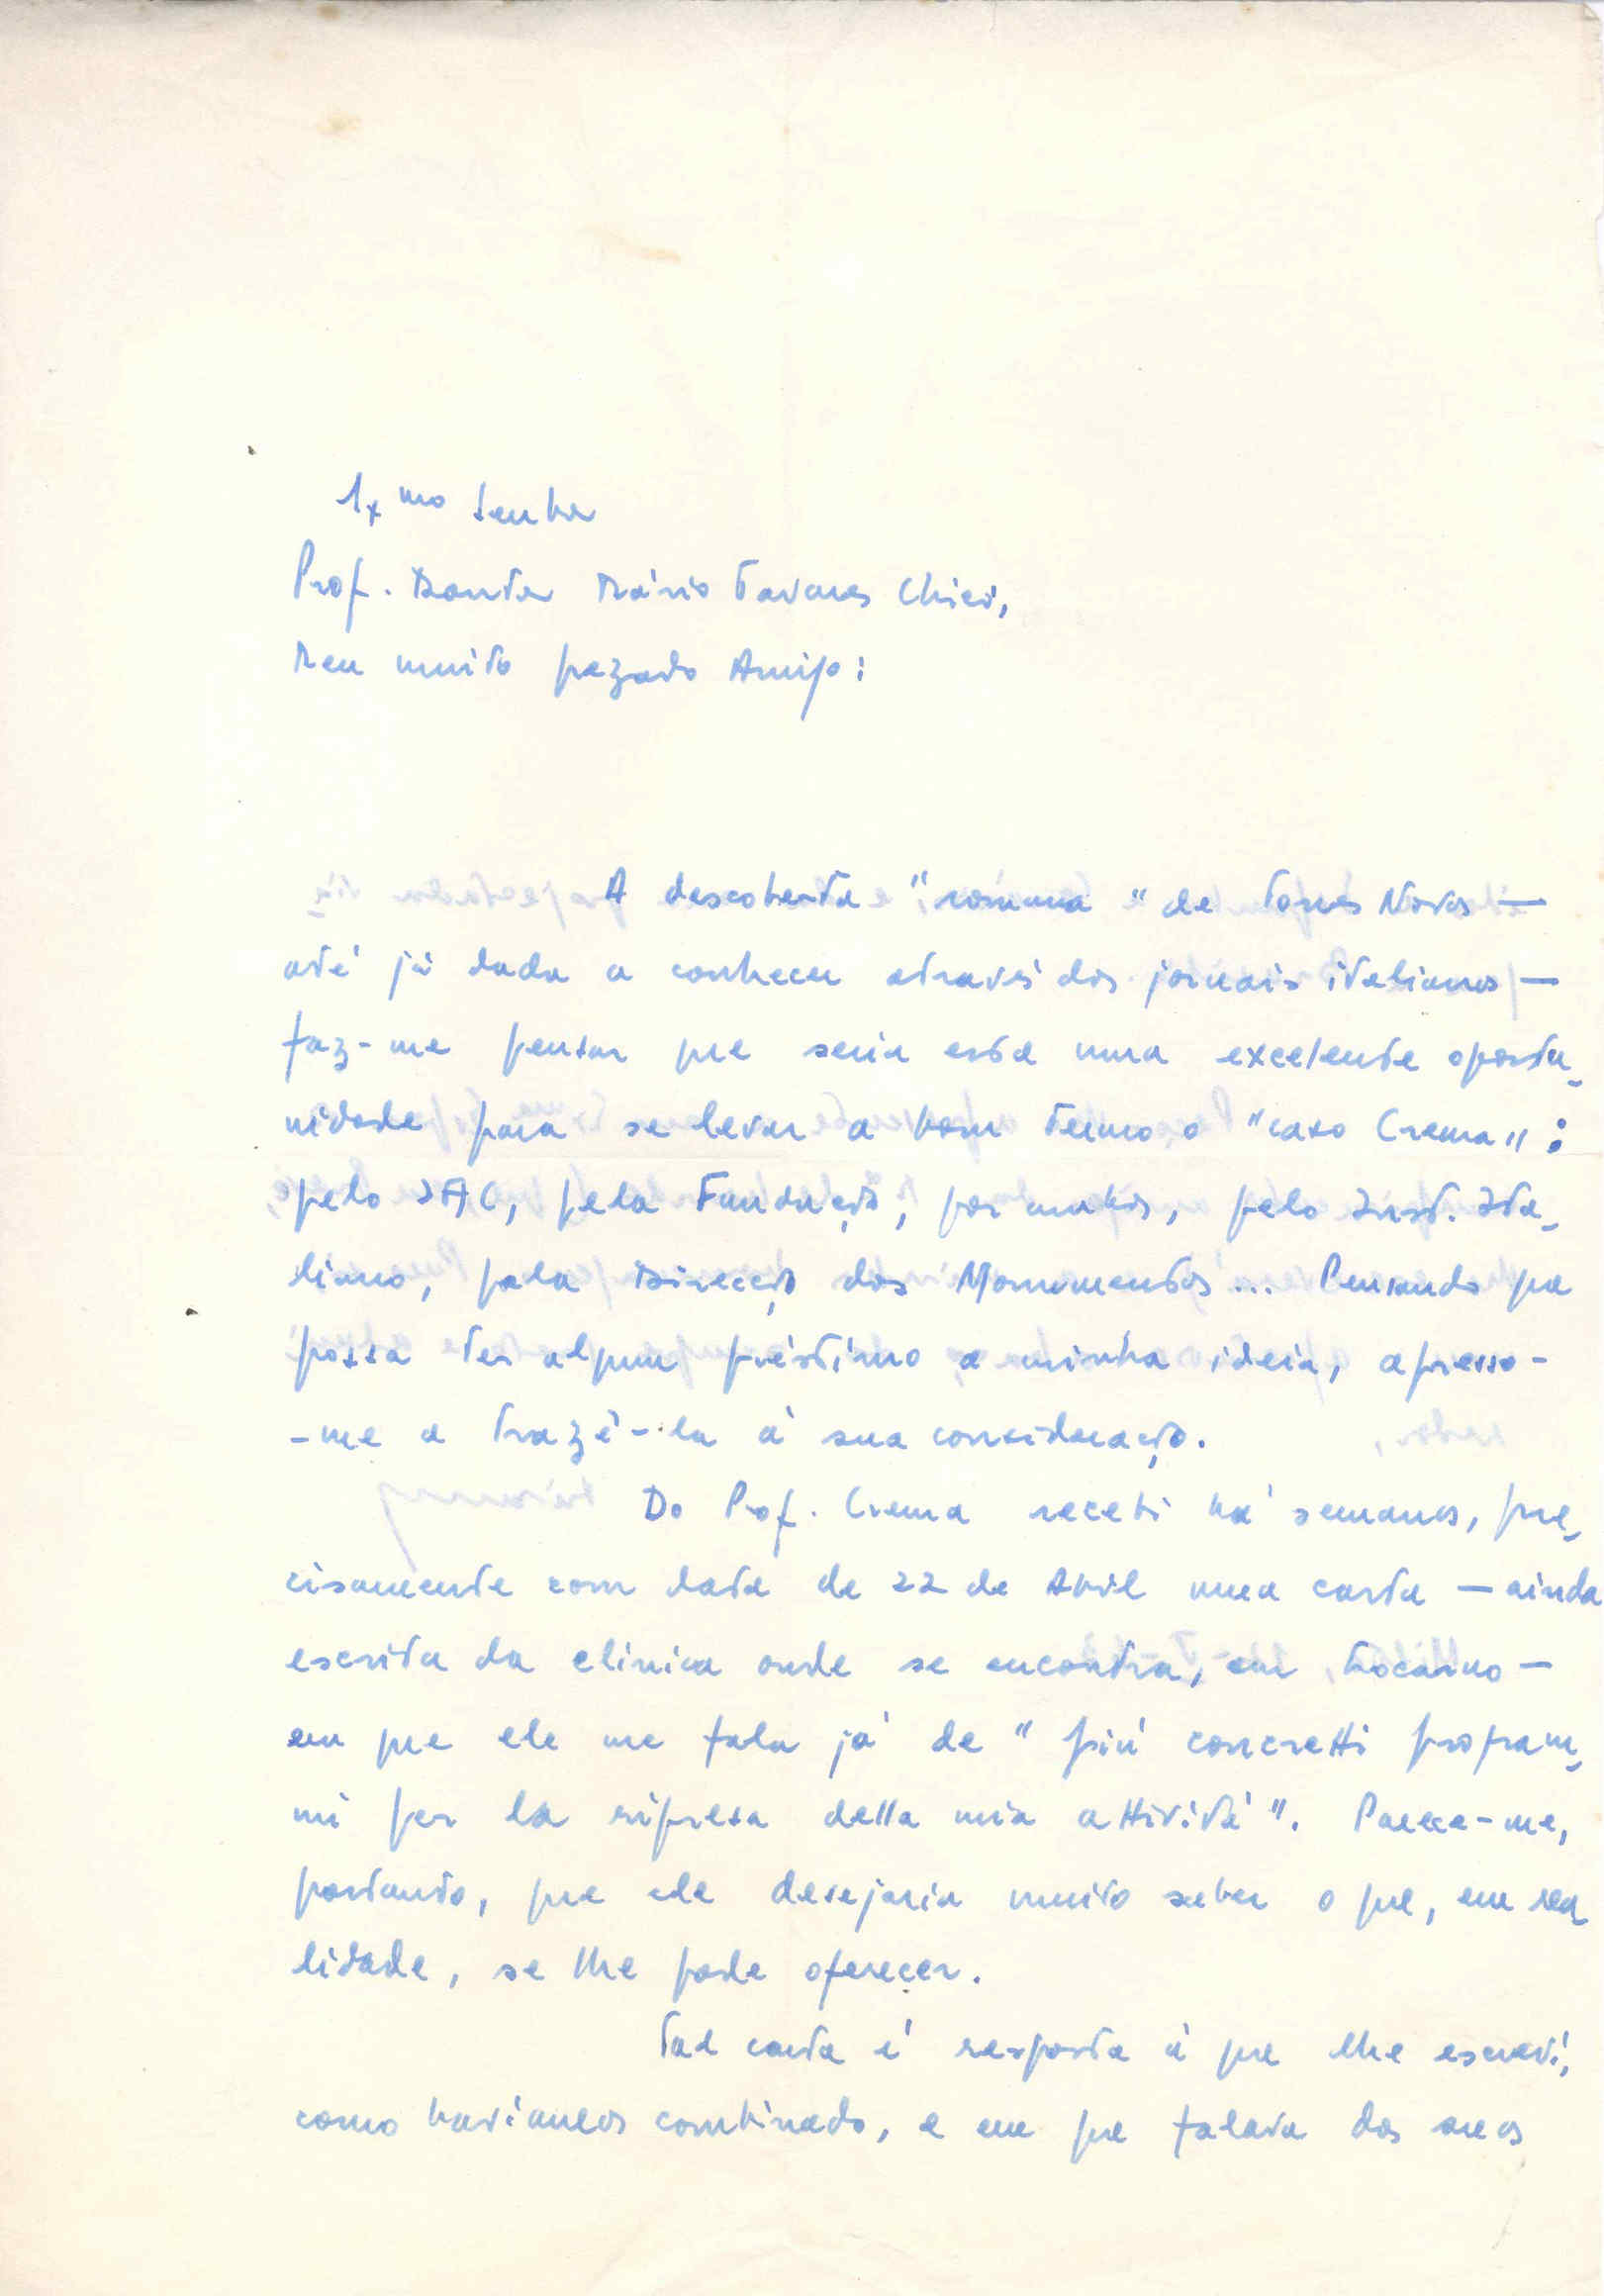 Exmo Senhor
Prof. Doutor Mário Tavares Chicó,
Meu muito prezado Amigo:
A descoberta "romana" de Torres Novas —
até já dada a conhecer através dos jornais italianos —
faz-me pensar que seria esta uma excelente oportu-
nidade para se levar a bom termo o "caso Crema":
pelo IAC, pela Fundação, por ambos, pelo Inst. Ita-
liano, pela Direcção dos Monumentos... Pensando que
possa ter algum préstimo a minha ideia, apresso-
-me a trazê-la à sua consideração.
Do Prof. Crema recebi há semanas, pre-
cisamente com data de 22 de Abril uma carta — ainda
escrita da clinica onde se encontra, em Locarno —
em que ele me fala já de "piú concretti program-
mi per la ripresa della mia attivitá". Parece-me,
portanto, que ele desejaria muito saber o que, em rea
lidade, se lhe pode oferecer.
Tal carta é resposta à que lhe escrevi,
como haviamos combinado, e em que falava dos seus